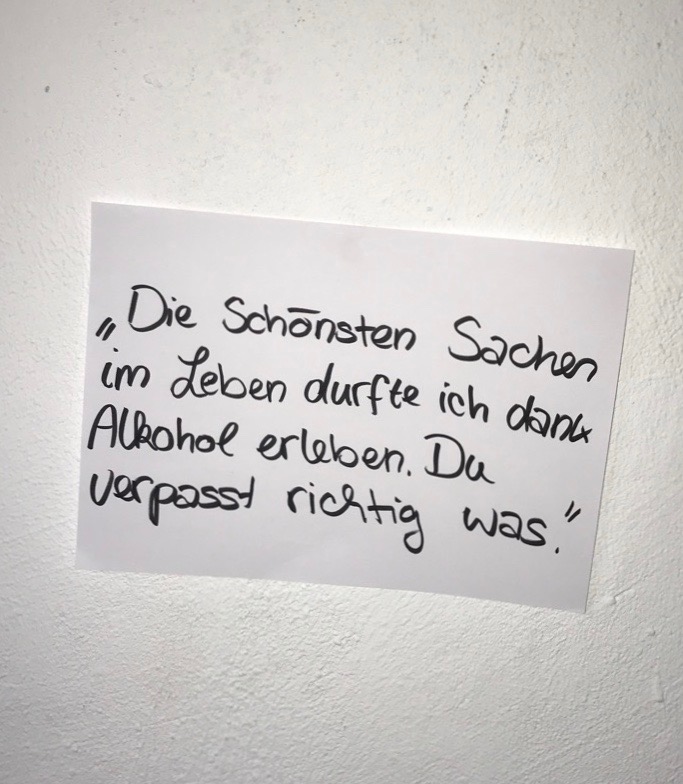 „Die Schönsten Sachen
im Leben durfte ich dank
Alkohol erleben. Du
verpasst richtig was.“